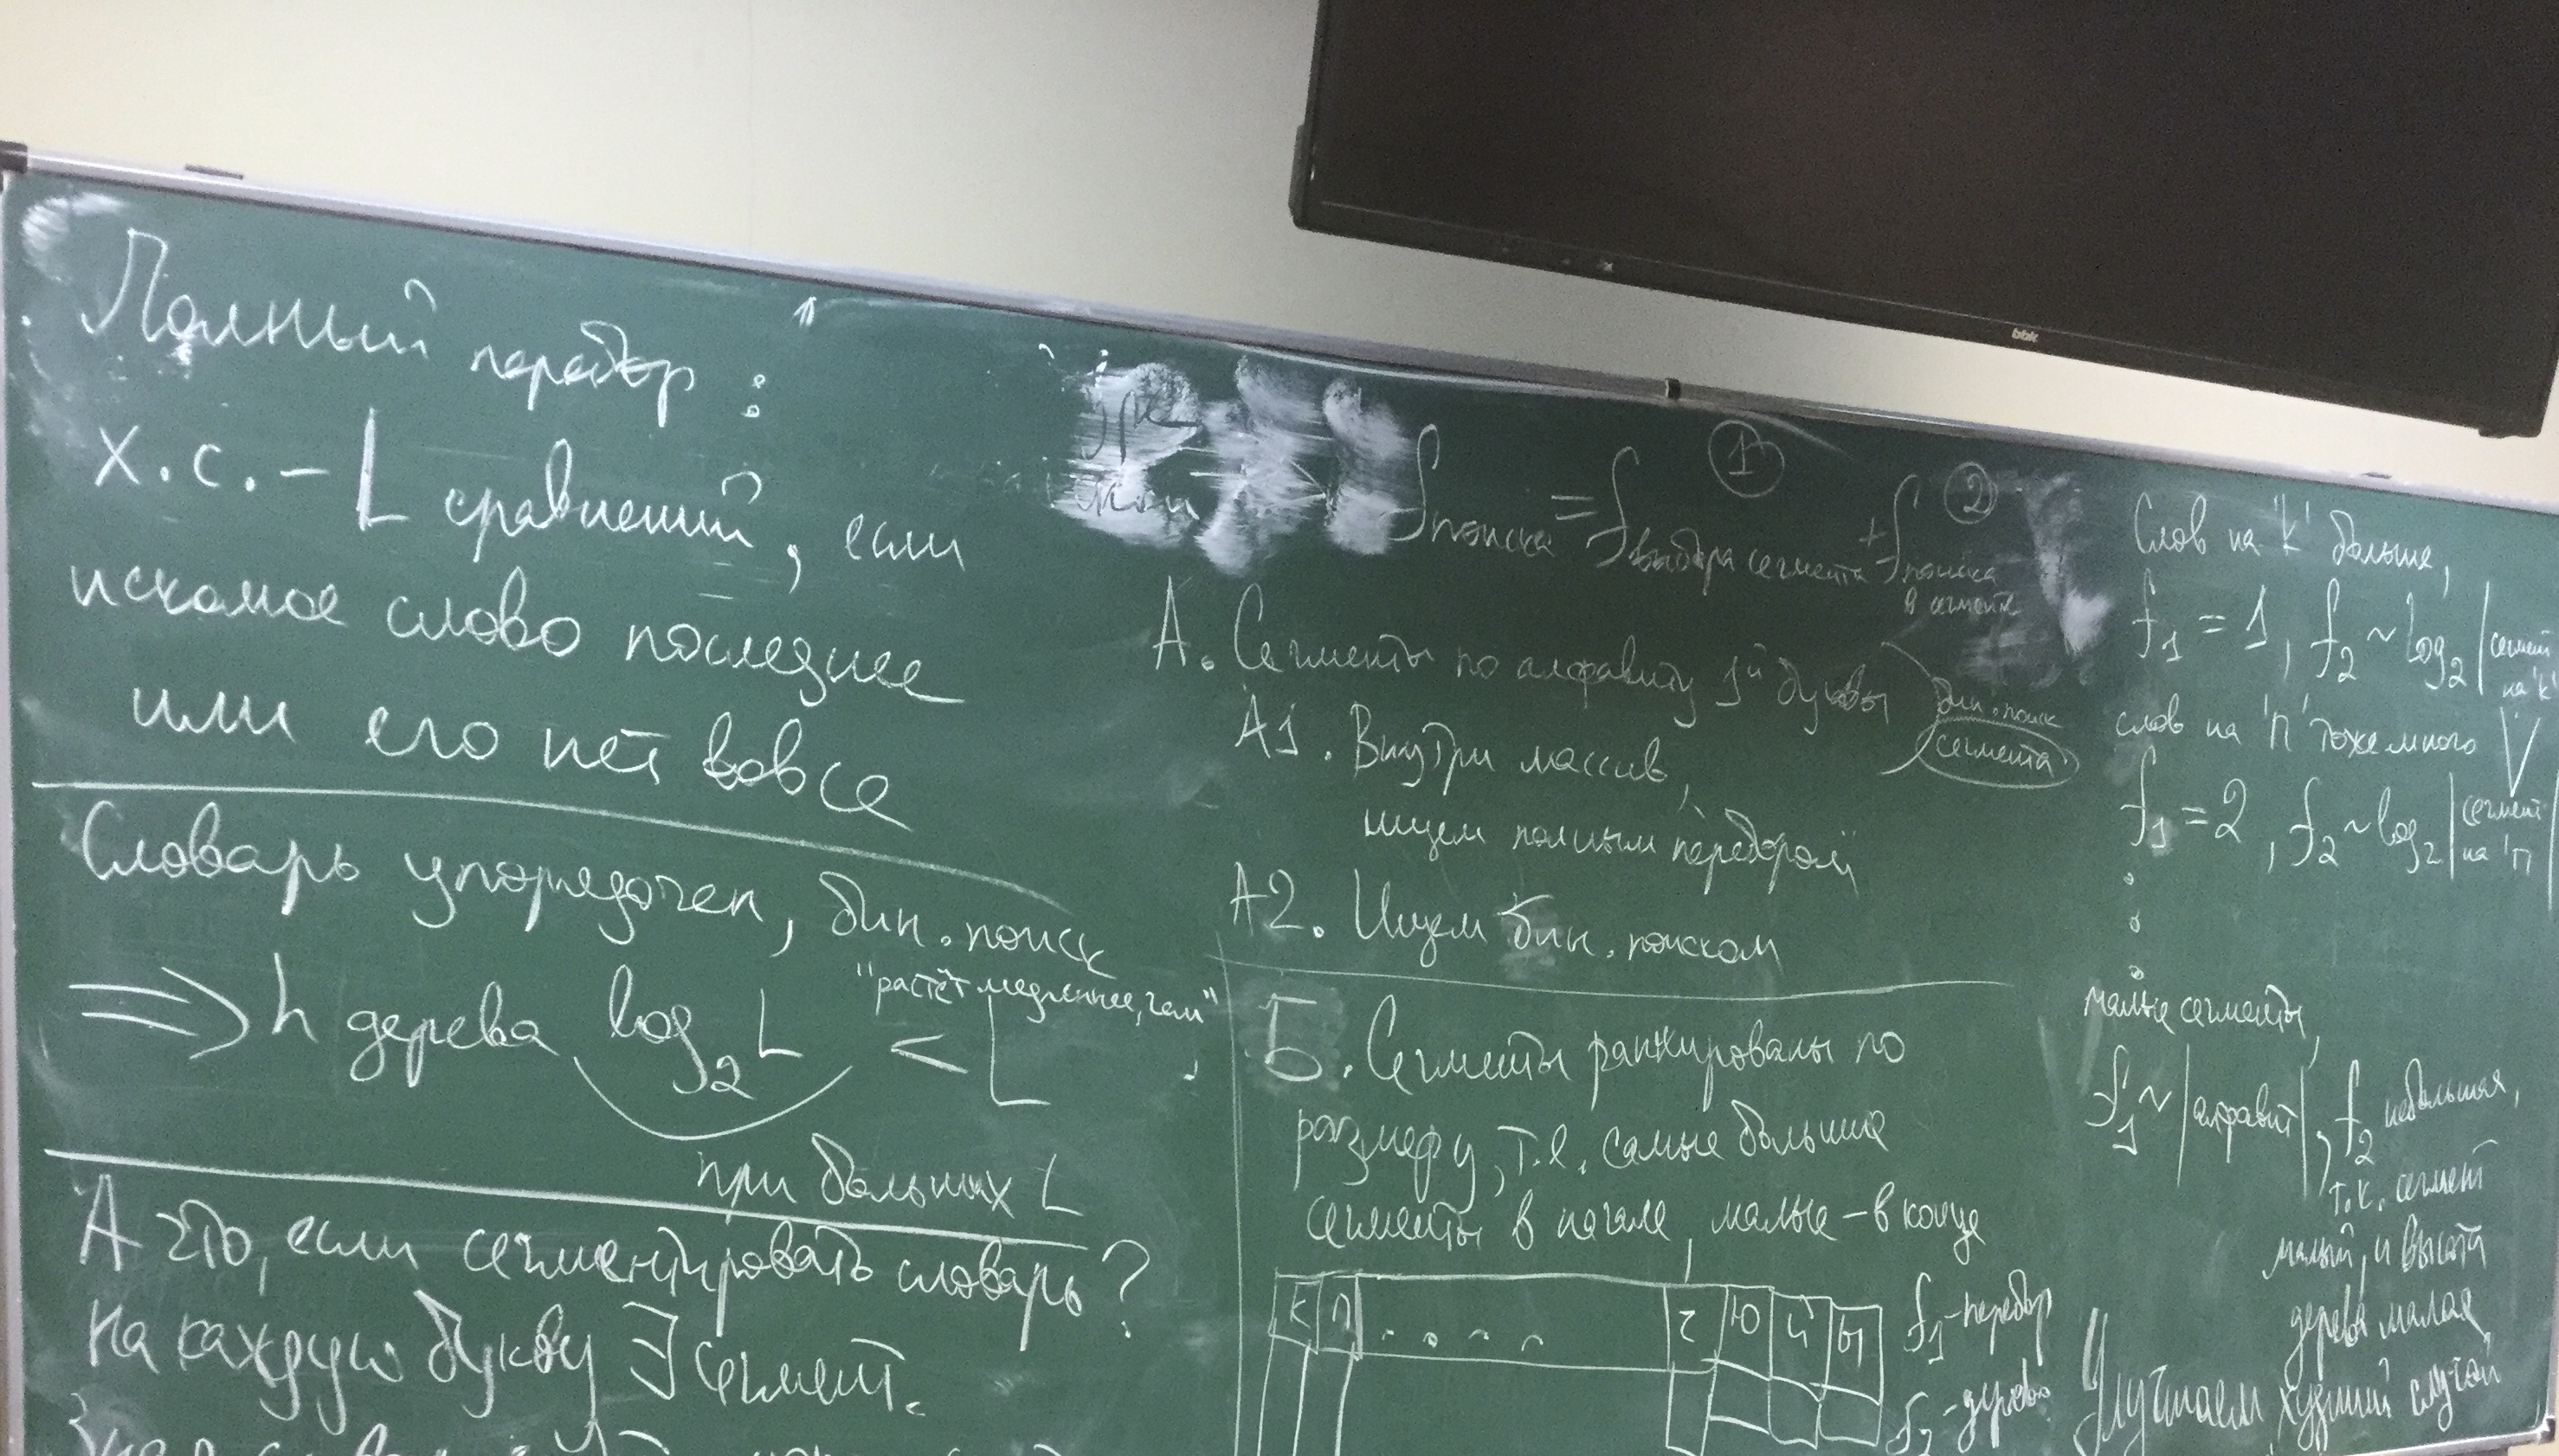 Полный перебор:
х.с. - L сравнений, если
искомое слово последнее
или его нет вовсе
Словарь упорядочен, бин. поиск
⇒ h дерева log₂L < L
"растёт медленнее, чем"
при больших L
А что, если сегментировать словарь?
На каждую букву ∃ сегмент.
f поиска = f выбора сегмента + f поиска в сегменте
① ②
А. Сегменты по алфавиту 1й буквы
А1. Внутри массив,
ищем полным перебором
А2. Ищем бин. поиском
бин. поиск
сегмента
Б. Сегменты ранжированы по
размеру, т.е. самые большие
сегменты в начале, малые - в конце
К П . . . . Ц Ю Й Ы
f₁ - перебор
f₂ - дерево
Слов на 'К' больше,
f₁ = 1, f₂ ~ log₂ |сегмент на 'К'
слов на 'П' тоже много
f₁ = 2, f₂ ~ log₂ |сегмент на 'П'|
малые сегменты,
f₁ ~ |алфавит|, f₂ небольшая,
т.к. сегмент
малый, и высота
дерева малая
Улучшаем худший случай
bbk